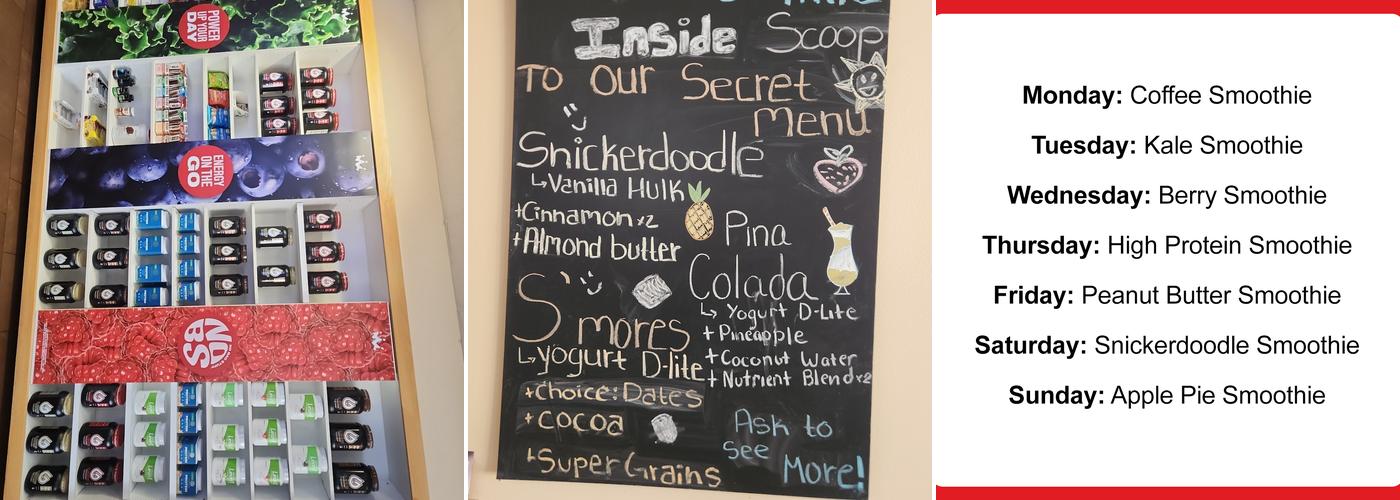 POWER
UP YOUR
DAY
ENERGY
ON THE
GO
NO
BS
Inside Scoop
To Our Secret
Menu
Snickerdoodle
↳Vanilla Hulk
+Cinnamon x2
+Almond butter
Pina
Colada
↳ Yogurt D-Lite
+ Pineapple
+ Coconut Water
+ Nutrient Blend x2
S'mores
↳yogurt D-lite
+choice: Dates
+cocoa
+Super Grains
Ask to
see
More!
Monday: Coffee Smoothie
Tuesday: Kale Smoothie
Wednesday: Berry Smoothie
Thursday: High Protein Smoothie
Friday: Peanut Butter Smoothie
Saturday: Snickerdoodle Smoothie
Sunday: Apple Pie Smoothie